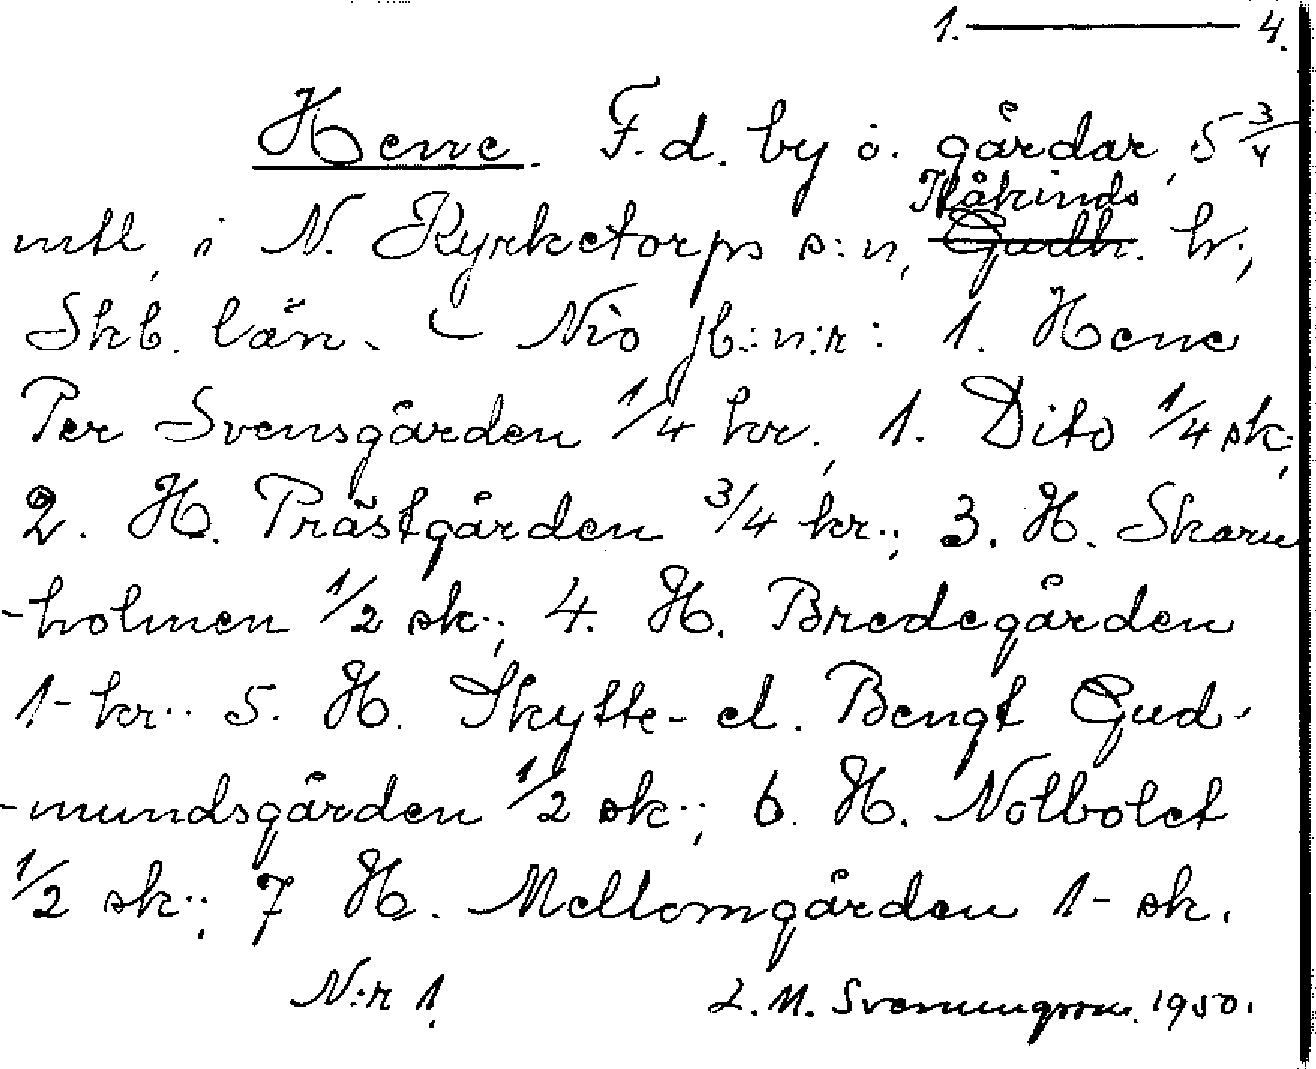 1. ——— 4.
Hene. F.d. by o. gårdar, 5 3/4
Kåkinds
mtl, i N. Kyrketorps s:n, Gudh. h.,
Skb. län. — Nio jb.:n:r: 1. Hene
Per Svensgården 1/4 kr., 1. Dito 1/4 sk.,
2. H. Prästgården 3/4 kr.; 3. H. Skarn
-holmen 1/2 sk.; 4. H. Bredegården
1- kr.. 5. H. Skytte- el. Bengt Gud-
-mundsgården 1/2 sk.; 6. H. Nolbolet
1/2 sk.; 7 H. Mellomgården 1- sk.
N:r 1. L. M. Svenungsson. 1950.